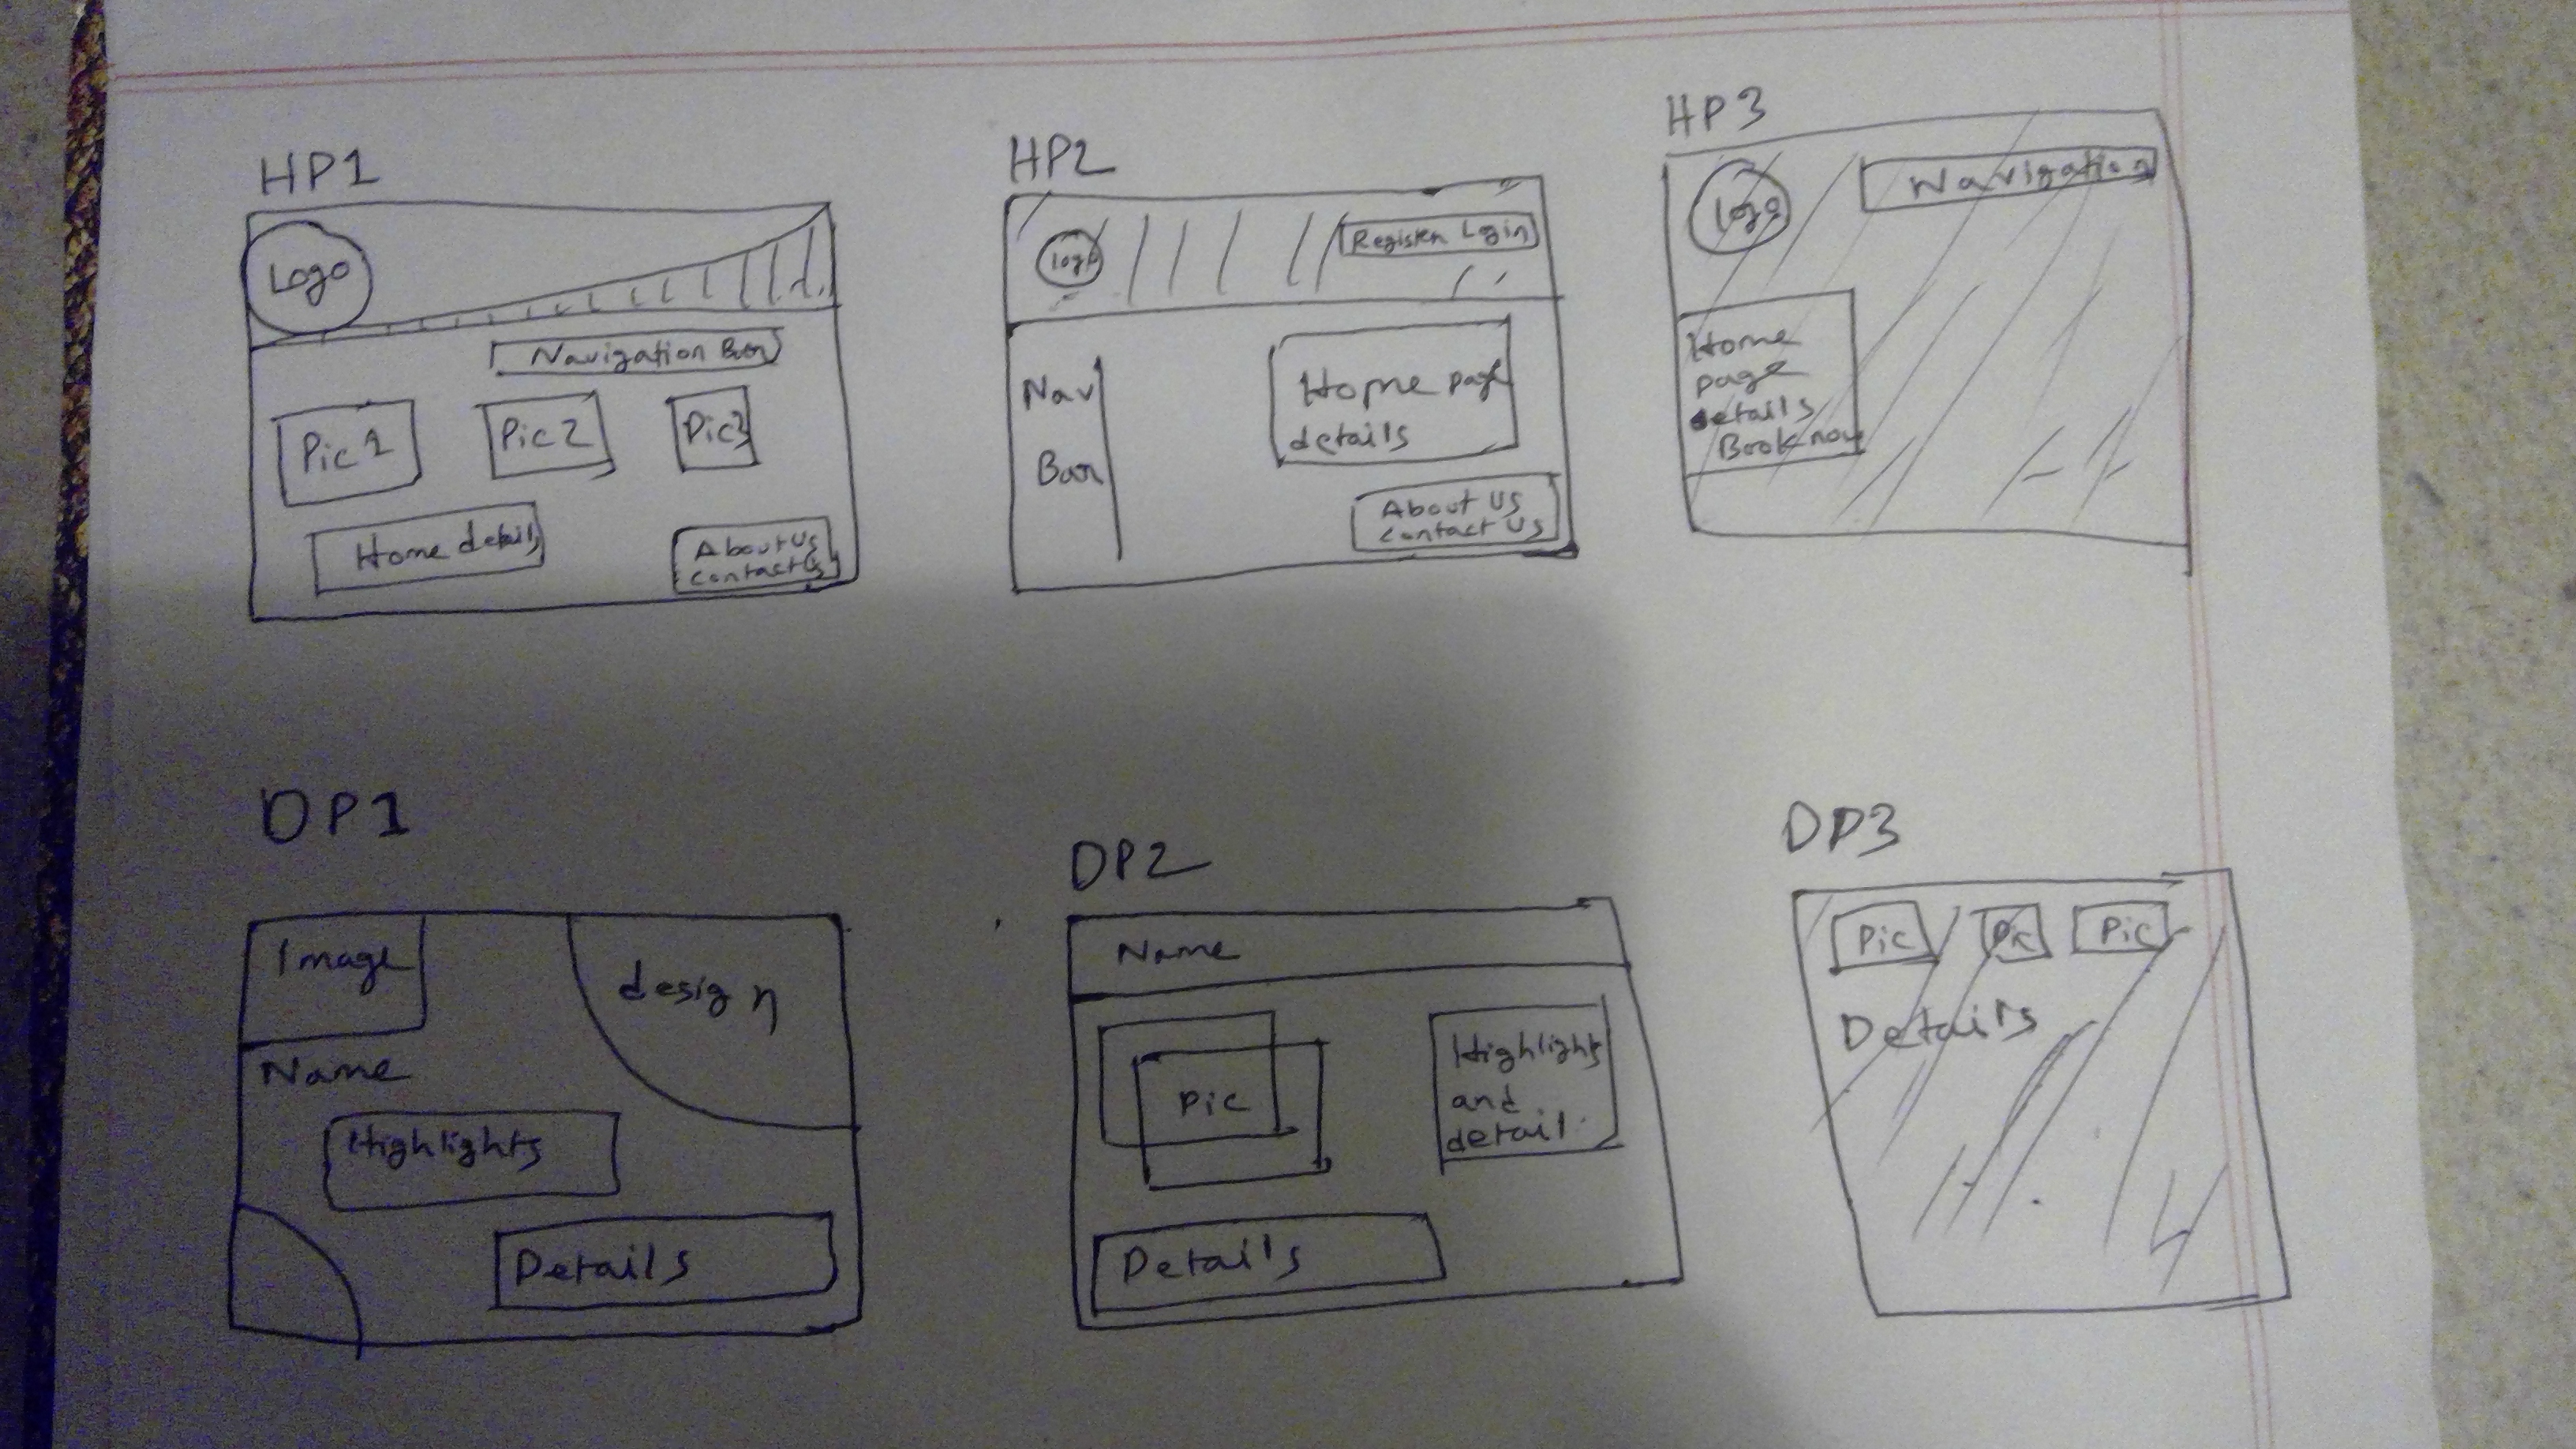 HP1
Logo
Navigation Bar
Pic 1
Pic 2
Pic3
Home details
About Us
Contact Us
HP2
logo
Register Login
Nav
Bar
Home page
details
About Us
Contact Us
HP3
Logo
Navigation
Home
page
details
Book now
DP1
Image
design
Name
Highlights
Details
DP2
Name
Pic
Highlights
and
detail.
Details
DP3
Pic
Pic
Pic
Details